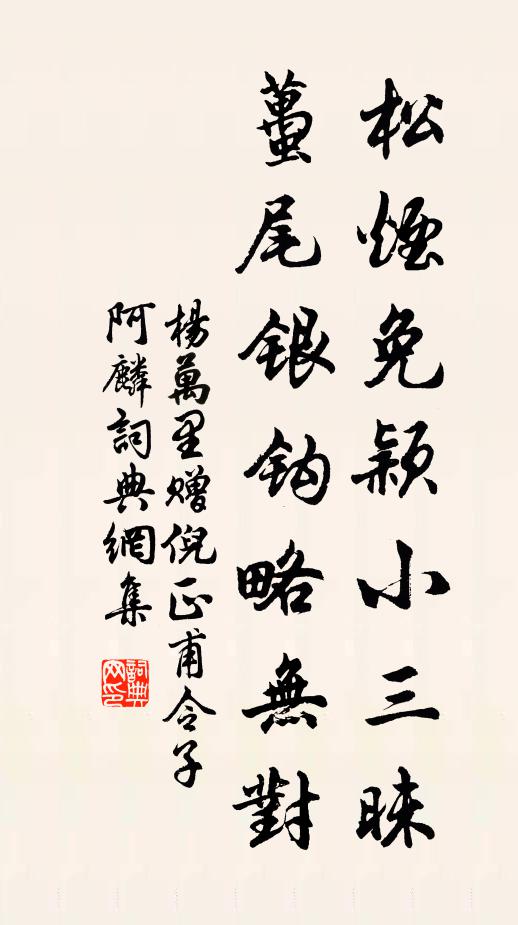 松煙兔穎小三昧
蠆尾銀鈎略無對
楊萬里贈倪正甫令子
阿麟詞典網集
詞典网印